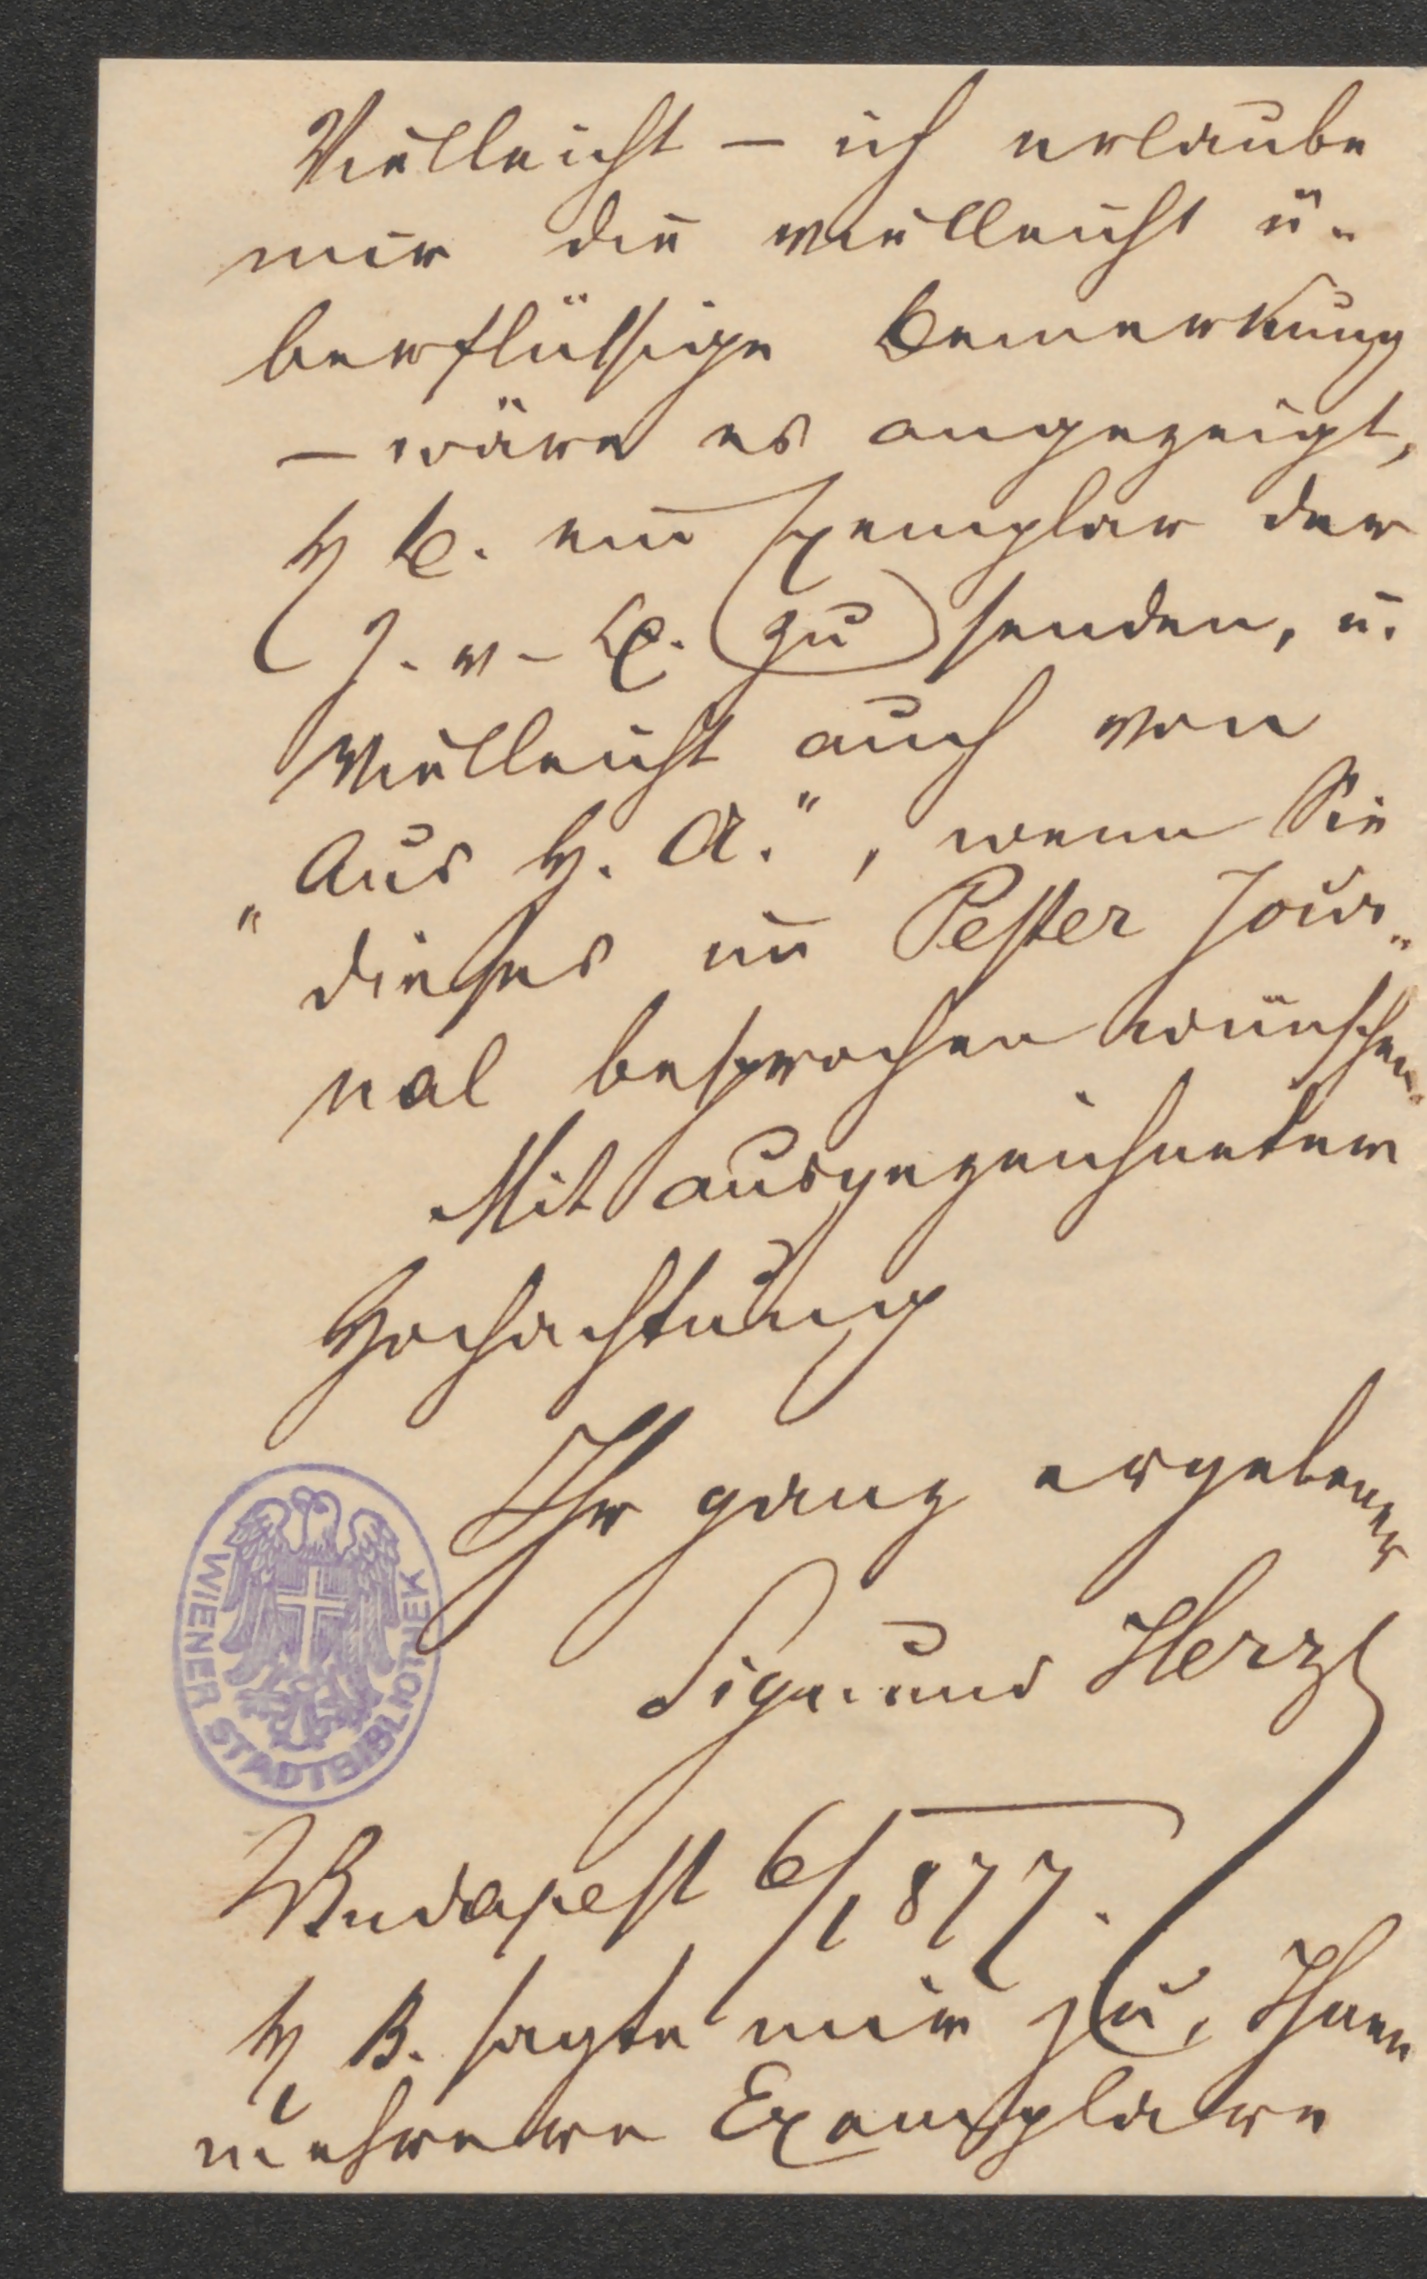 Vielleicht – ich erlaube
mir die vielleicht ü-
berflüssige Bemerkung
– wäre es angezeigt,
H B. ein Exemplar der
J. v. L. zu senden, u.
vielleicht auch von
„Aus H. A.", wenn Sie
dieses im Pester Jour-
nal besprochen wünschen.
Mit ausgezeichneter
Hochachtung
Ihr ganz ergebener
Sigmund Herzl
WIENER STADTBIBLIOTHEK
Budapest 6/1 877.
H B. sagte mir zu, Ihnen
mehrere Exemplare